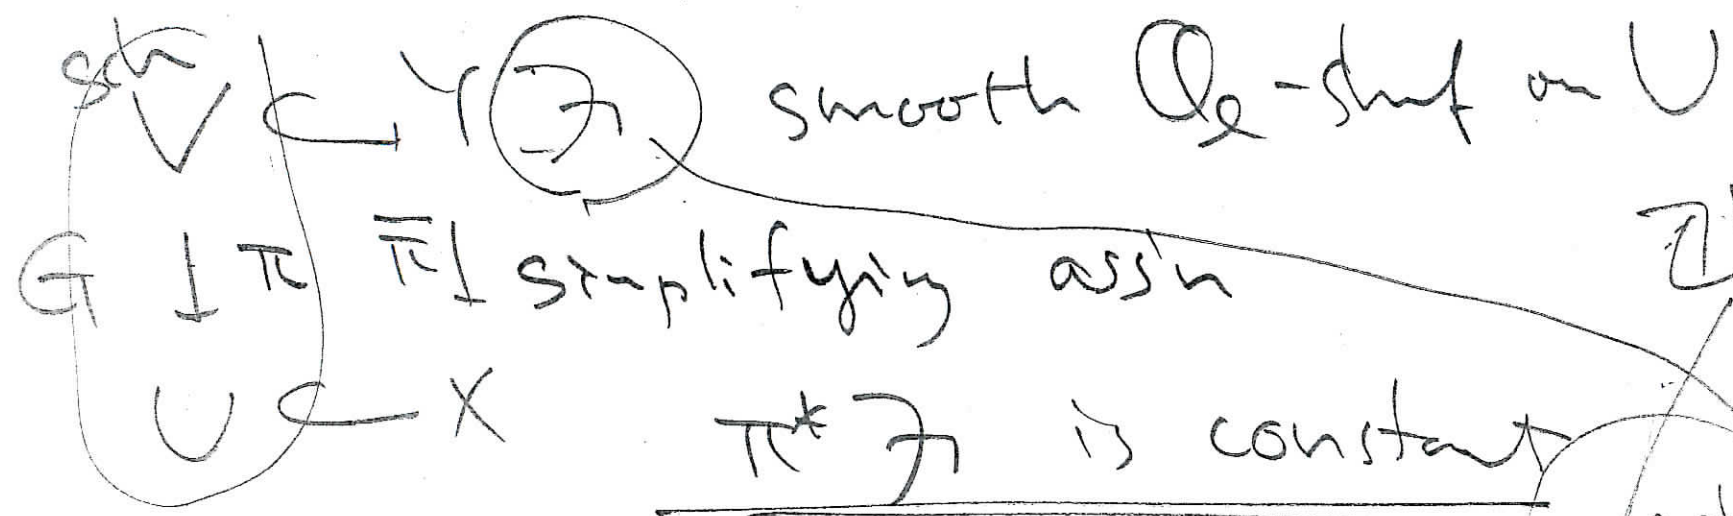 sch
V ⊂→ Y ℱ smooth ℚ_ℓ-shf on U
G ↓ π π̄ ↓ simplifying ass'n
U ⊂→ X π*ℱ is constant